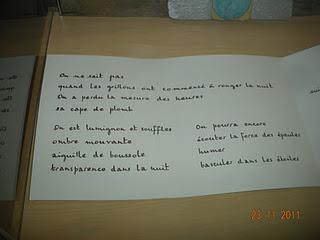 On ne sait pas
quand les grillons ont commencé à ronger la nuit
On a perdu la mesure des heures
sa cape de plomb
On est lumignon et souffles
ombre mouvante
aiguille de boussole
transparence dans la nuit
On pourra encore
écouter la force des épaules
humer
basculer dans les étoiles
23 11 2011